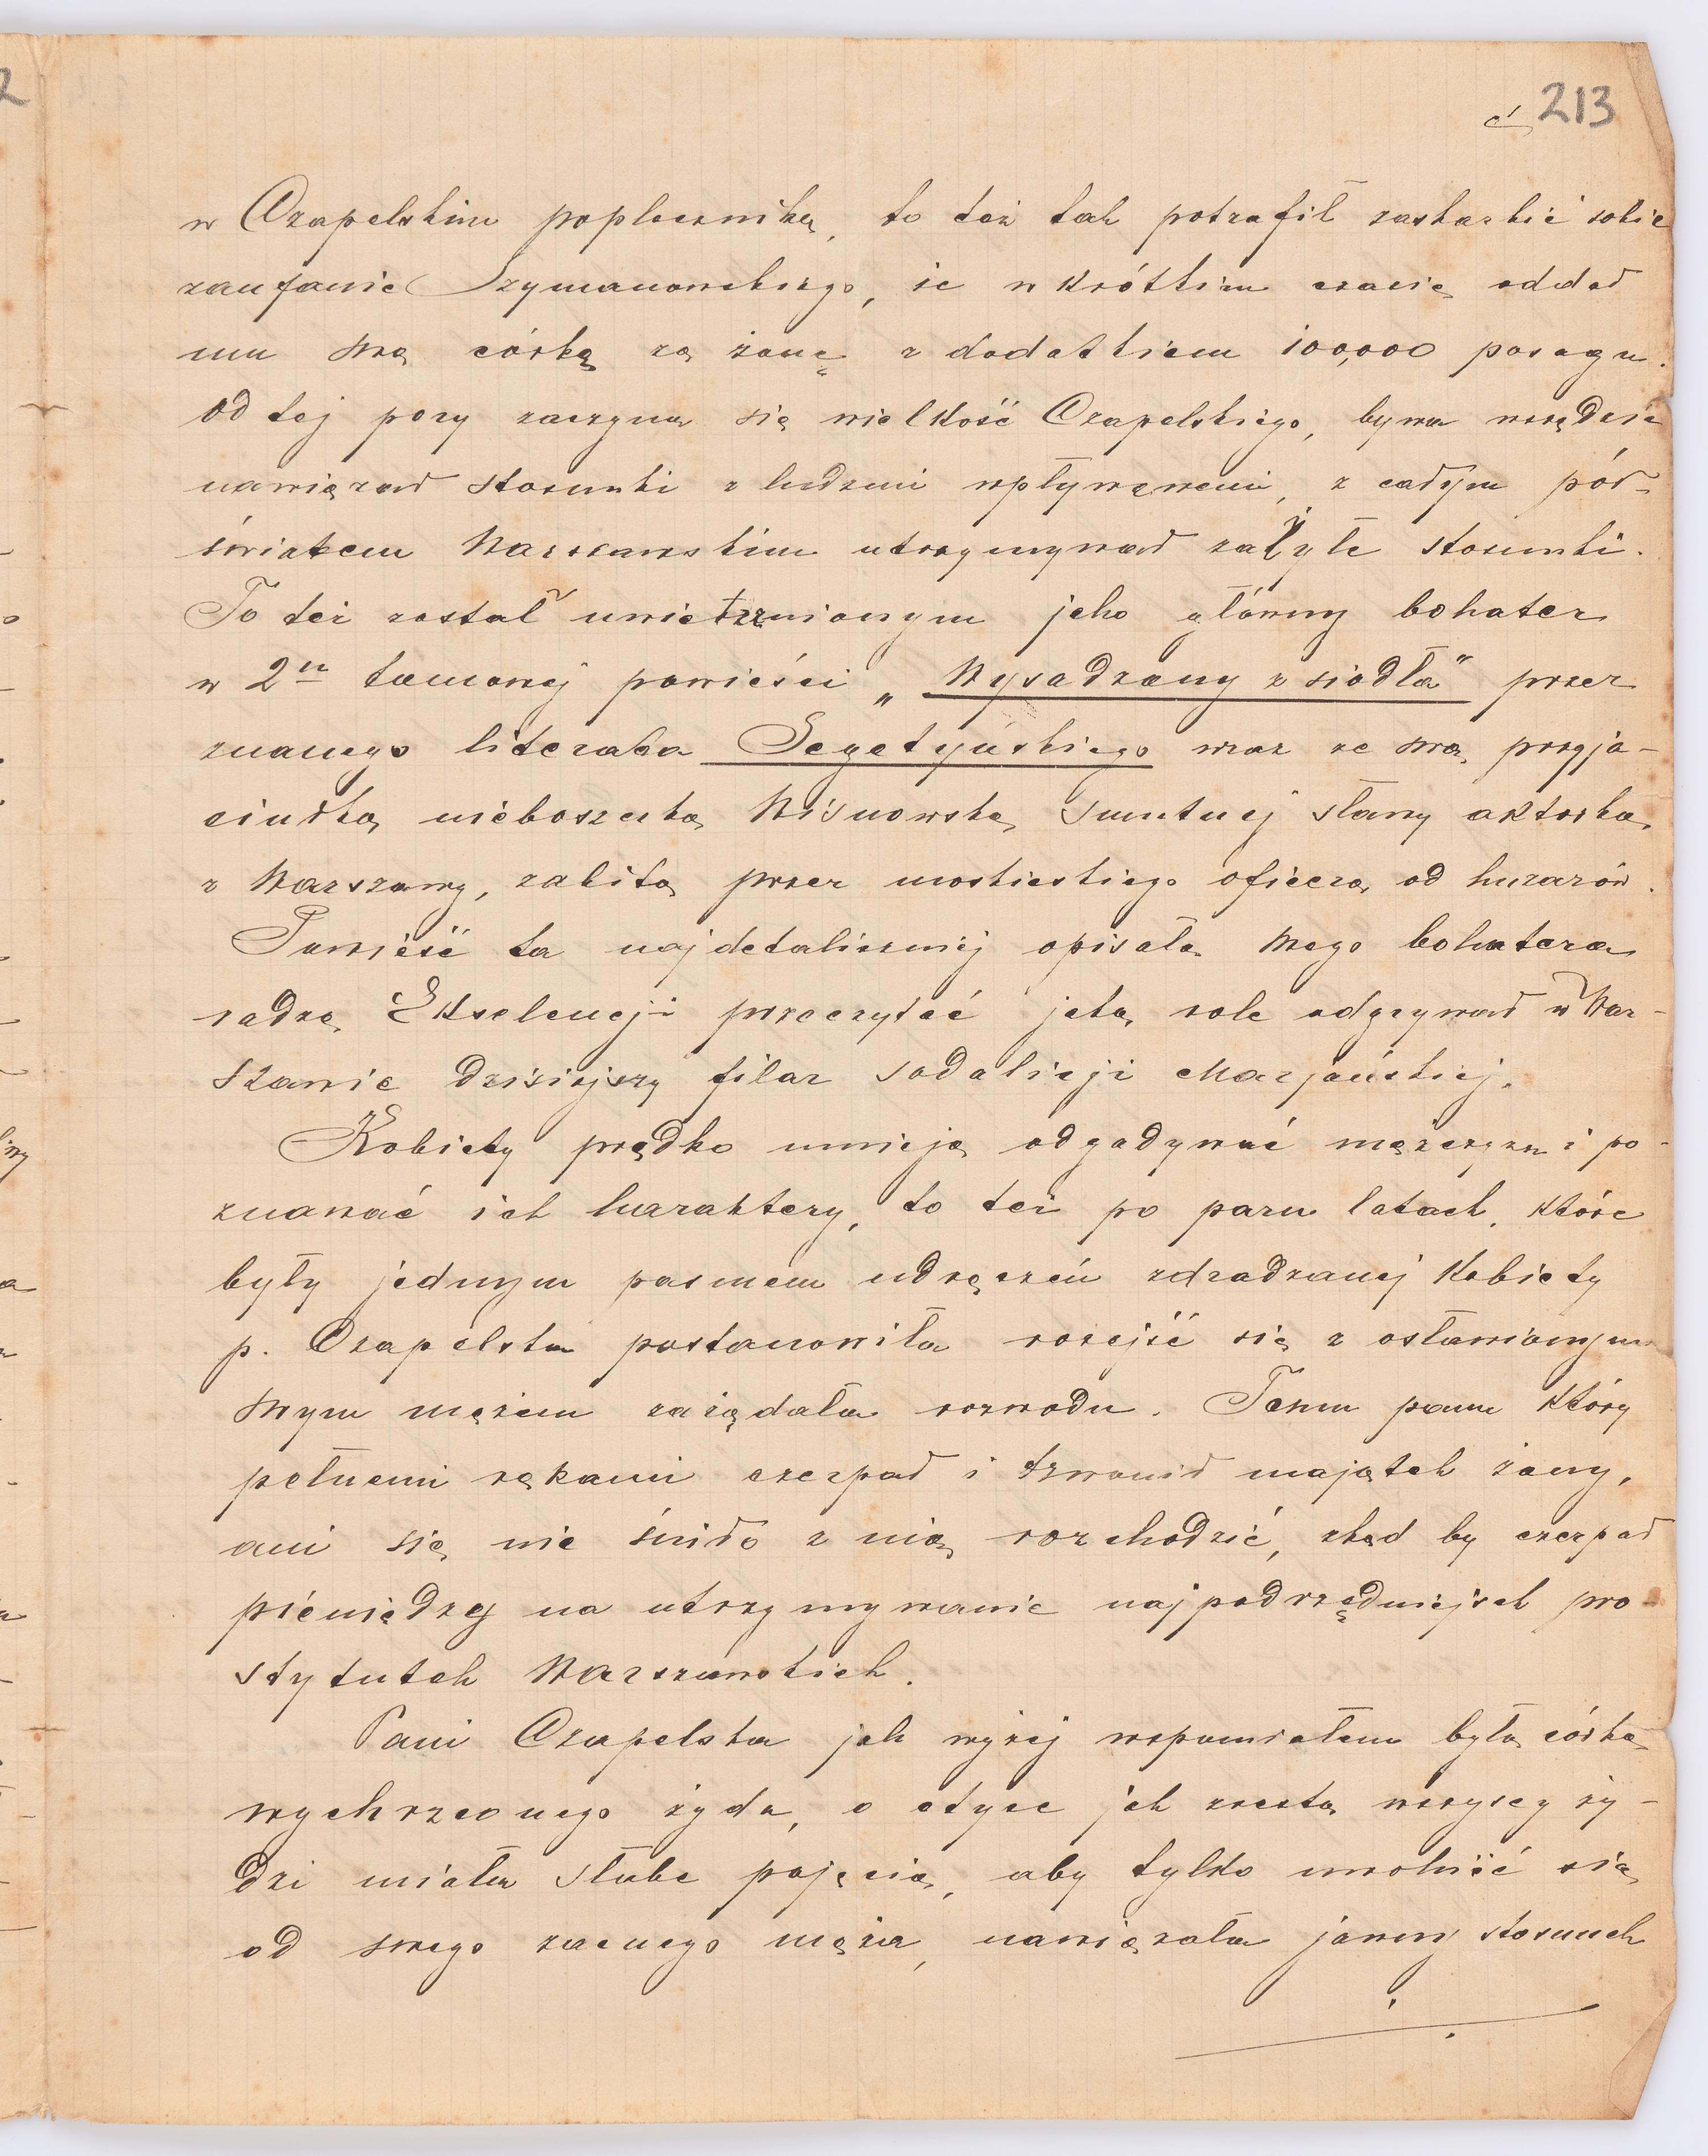 213
w Czapelskim poplecznika, to też tak potrafił zaskarbić sobie
zaufanie Szymanowskiego, że w krótkim czasie oddał
mu swą córkę za żonę z dodatkiem 100,000 posagu.
Od tej pory zaczyna się wielkość Czapelskiego, bywa wszędzie
nawiązał stosunki z ludźmi wpływowemi, z całym pół-
światem Warszawskim utrzymywał zażyłe stosunki.
To też został uwiecznionym jeho główny bohater
w 2u tomowej powieści „Wysadzony z siodła" przez
znanego literata Sygetyńskiego wraz ze swą przyja-
ciułką nieboszczką Wisnowską smutnej sławy aktorką
z Warszawy, zabitą przez moskieskiego oficera od huzarów.
Powieść ta najdetaliczniej opisała mego bohatera
radzę Ekselencji przeczytać jaką role odgrywał w War-
szawie dzisiejszy filar sodalicji Marjańskiej.
Kobiety prędko umieją odgadywać mężczyzn i po-
znawać ich haraktery, to też po paru latach, które
były jednym pasmem udręczeń zdradzanej kobiety
p. Czapelska postanowiła rozejść się z osławionym
swym mężem zażądała rozwodu. Temu panu który
pełnemi rękami czerpał i trwonił majątek żony,
ani się nie śniło z nią rozchodzić, zkąd by czerpał
pieniędzy na utrzymywanie najpodrzędniejszch pro-
stytutek Warszawskich.
Pani Czapelska jak wyżej wspomniałem była córką
wychrzconego żyda, o etyce jak zresztą wszyscy ży-
dzi miała słabe pojęcia, aby tylko uwolnić się
od swego zacnego męża, nawiązała jawny stosunek